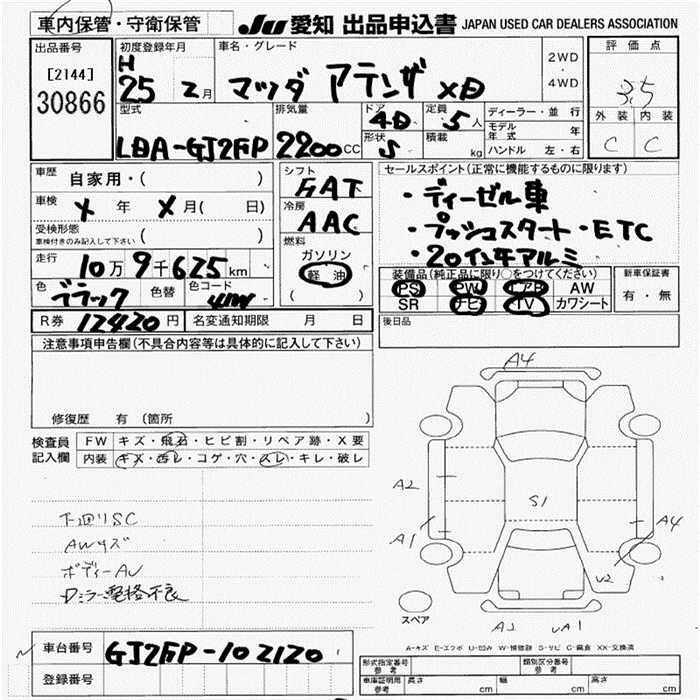 車内保管・守衛保管
JU 愛知 出品申込書 JAPAN USED CAR DEALERS ASSOCIATION
出品番号
[2144]
30866
初度登録年月
H
25 2月
車名・グレード
マツダ アテンザ XD
2WD
・
4WD
評価点
3.5
外装 内装
C C
型式
LDA-GJ2FP
排気量
2200CC
ドア
4D
形状
S
定員
5人
積載
kg
ディーラー・並行
モデル年式 年
ハンドル 左・右
車歴
自家用・( )
車検
X 年 X 月( 日)
受検形態
車検付きのみ記入して下さい ( )
走行
10万9千625km
色
ブラック
色替
色コード
41W
R券 12420円
名変通知期限 月 日
シフト
FAT
冷房
AAC
燃料
ガソリン
軽油
( )
セールスポイント(正常に機能するものに限ります)
・ディーゼル車
・プッシュスタート・ETC
・20インチアルミ
装備品(純正品に限り○をつけてください)
PS PW エアB AW
SR ナビ TV カワシート
新車保証書
有・無
後日品
注意事項申告欄(不具合内容等は具体的に記入して下さい)
修復歴 有 (箇所 )
検査員記入欄
FW キズ・飛石・ヒビ割・リペア跡・X要
内装 キズ・汚レ・コゲ・穴・スレ・キレ・破レ
下回りSC
AWキズ
ボディーAU
Dミラー電格不良
A4
A2
S1
A1
A4
U2
スペア
A2 UA1
A-キズ E-エクボ U-凹み W-補修跡 S-サビ C-腐食 XX-交換済
車台番号 GJ2FP-102120
登録番号
形式指定番号
参考
類別区分番号
参考
車庫証明用
参考
長さ cm
幅 cm
高さ cm